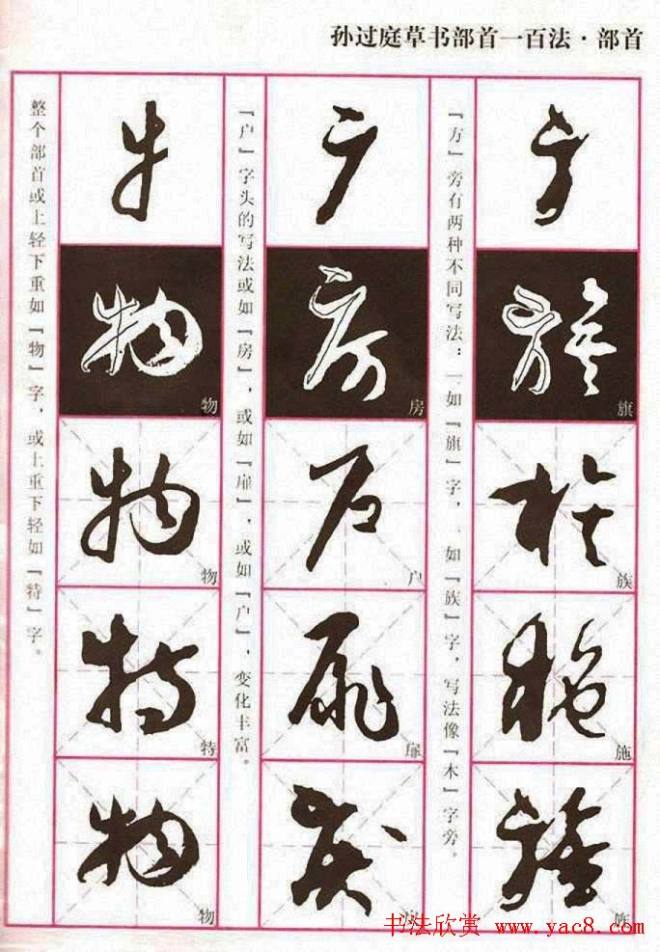 孙过庭草书部首一百法·部首
「方」旁有两种不同写法：一如「旗」字，一如「族」字，写法像「木」字旁。
方
旗
旗
族
族
施
施
「户」字头的写法或如「房」，或如「扉」，或如「户」，变化丰富。
户
房
房
户
户
扉
扉
整个部首或上轻下重如「物」字，或上重下轻如「特」字。
牛
物
物
物
物
特
特
物
物
书法欣赏 www.yac8.com